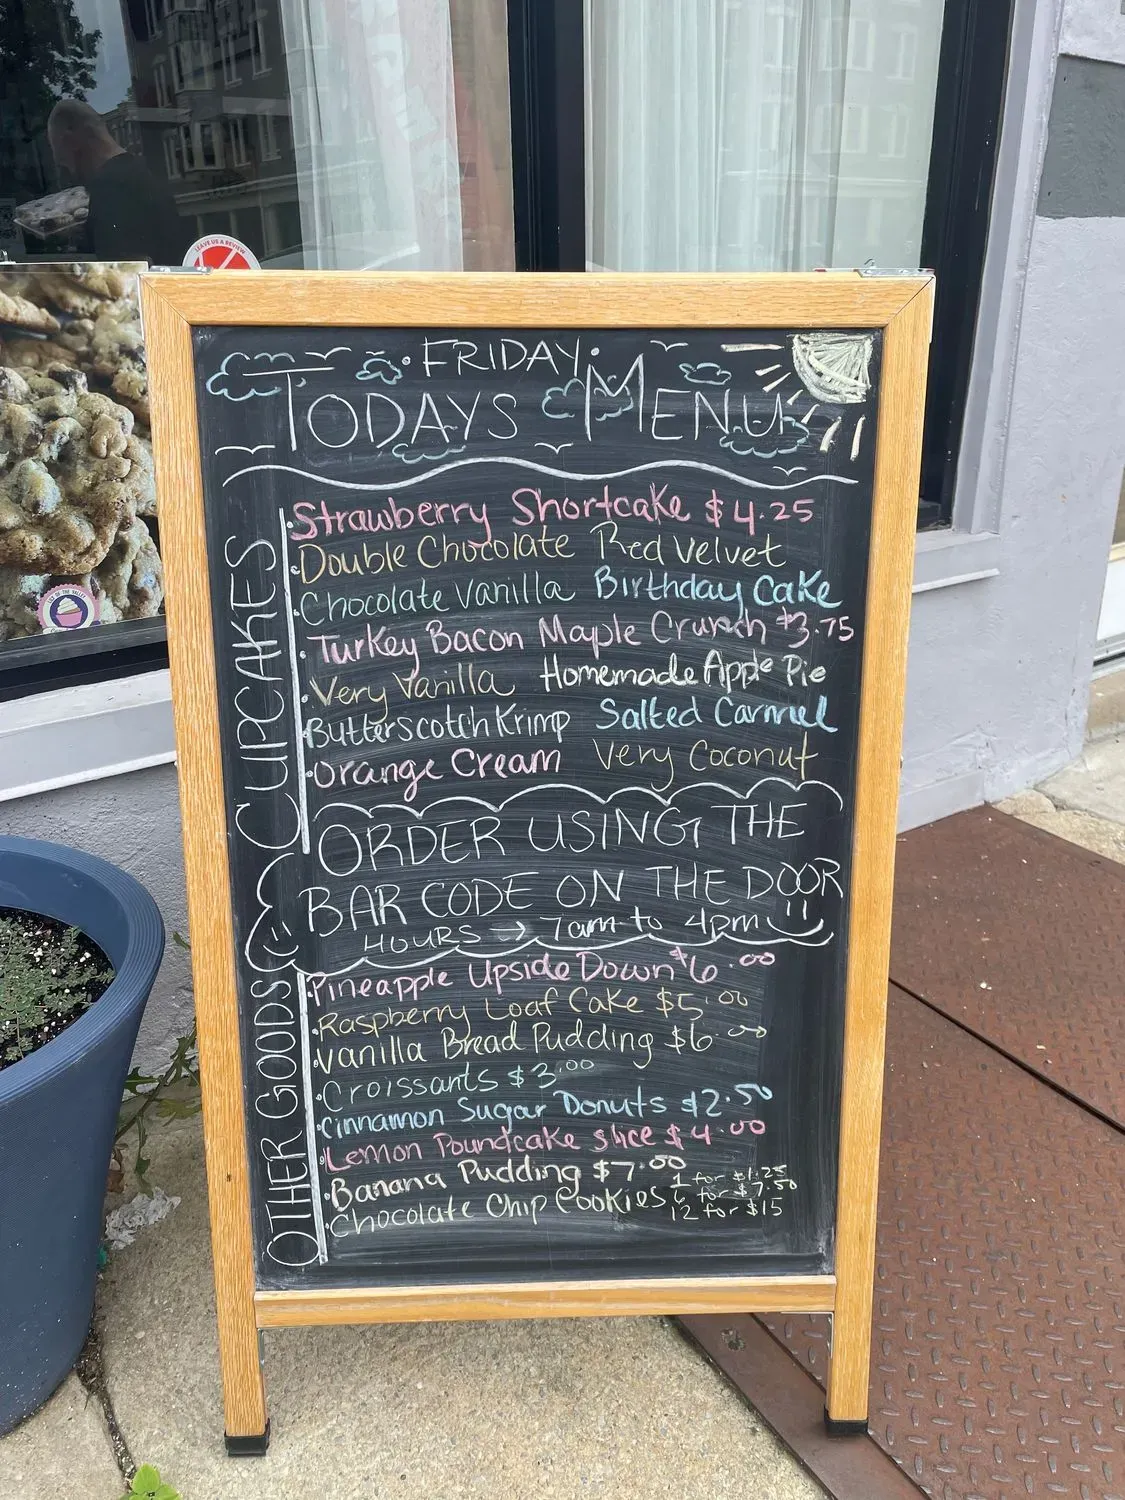 LEAVE US A REVIEW
FRIDAY
TODAYS MENU
CUPCAKES
Strawberry Shortcake $4.25
Double Chocolate Red Velvet
Chocolate Vanilla Birthday Cake
Turkey Bacon Maple Crunch $3.75
Very Vanilla Homemade Apple Pie
Butterscotch Krimp Salted Carmel
Orange Cream Very Coconut
ORDER USING THE
BAR CODE ON THE DOOR
HOURS → 7am to 4pm
OTHER GOODS
Pineapple Upside Down $6.00
Raspberry Loaf Cake $5.00
Vanilla Bread Pudding $6.00
Croissants $3.00
Cinnamon Sugar Donuts $2.50
Lemon Poundcake slice $4.00
Banana Pudding $7.00
Chocolate Chip Cookies 1 for $1.25
6 for $7.50
12 for $15